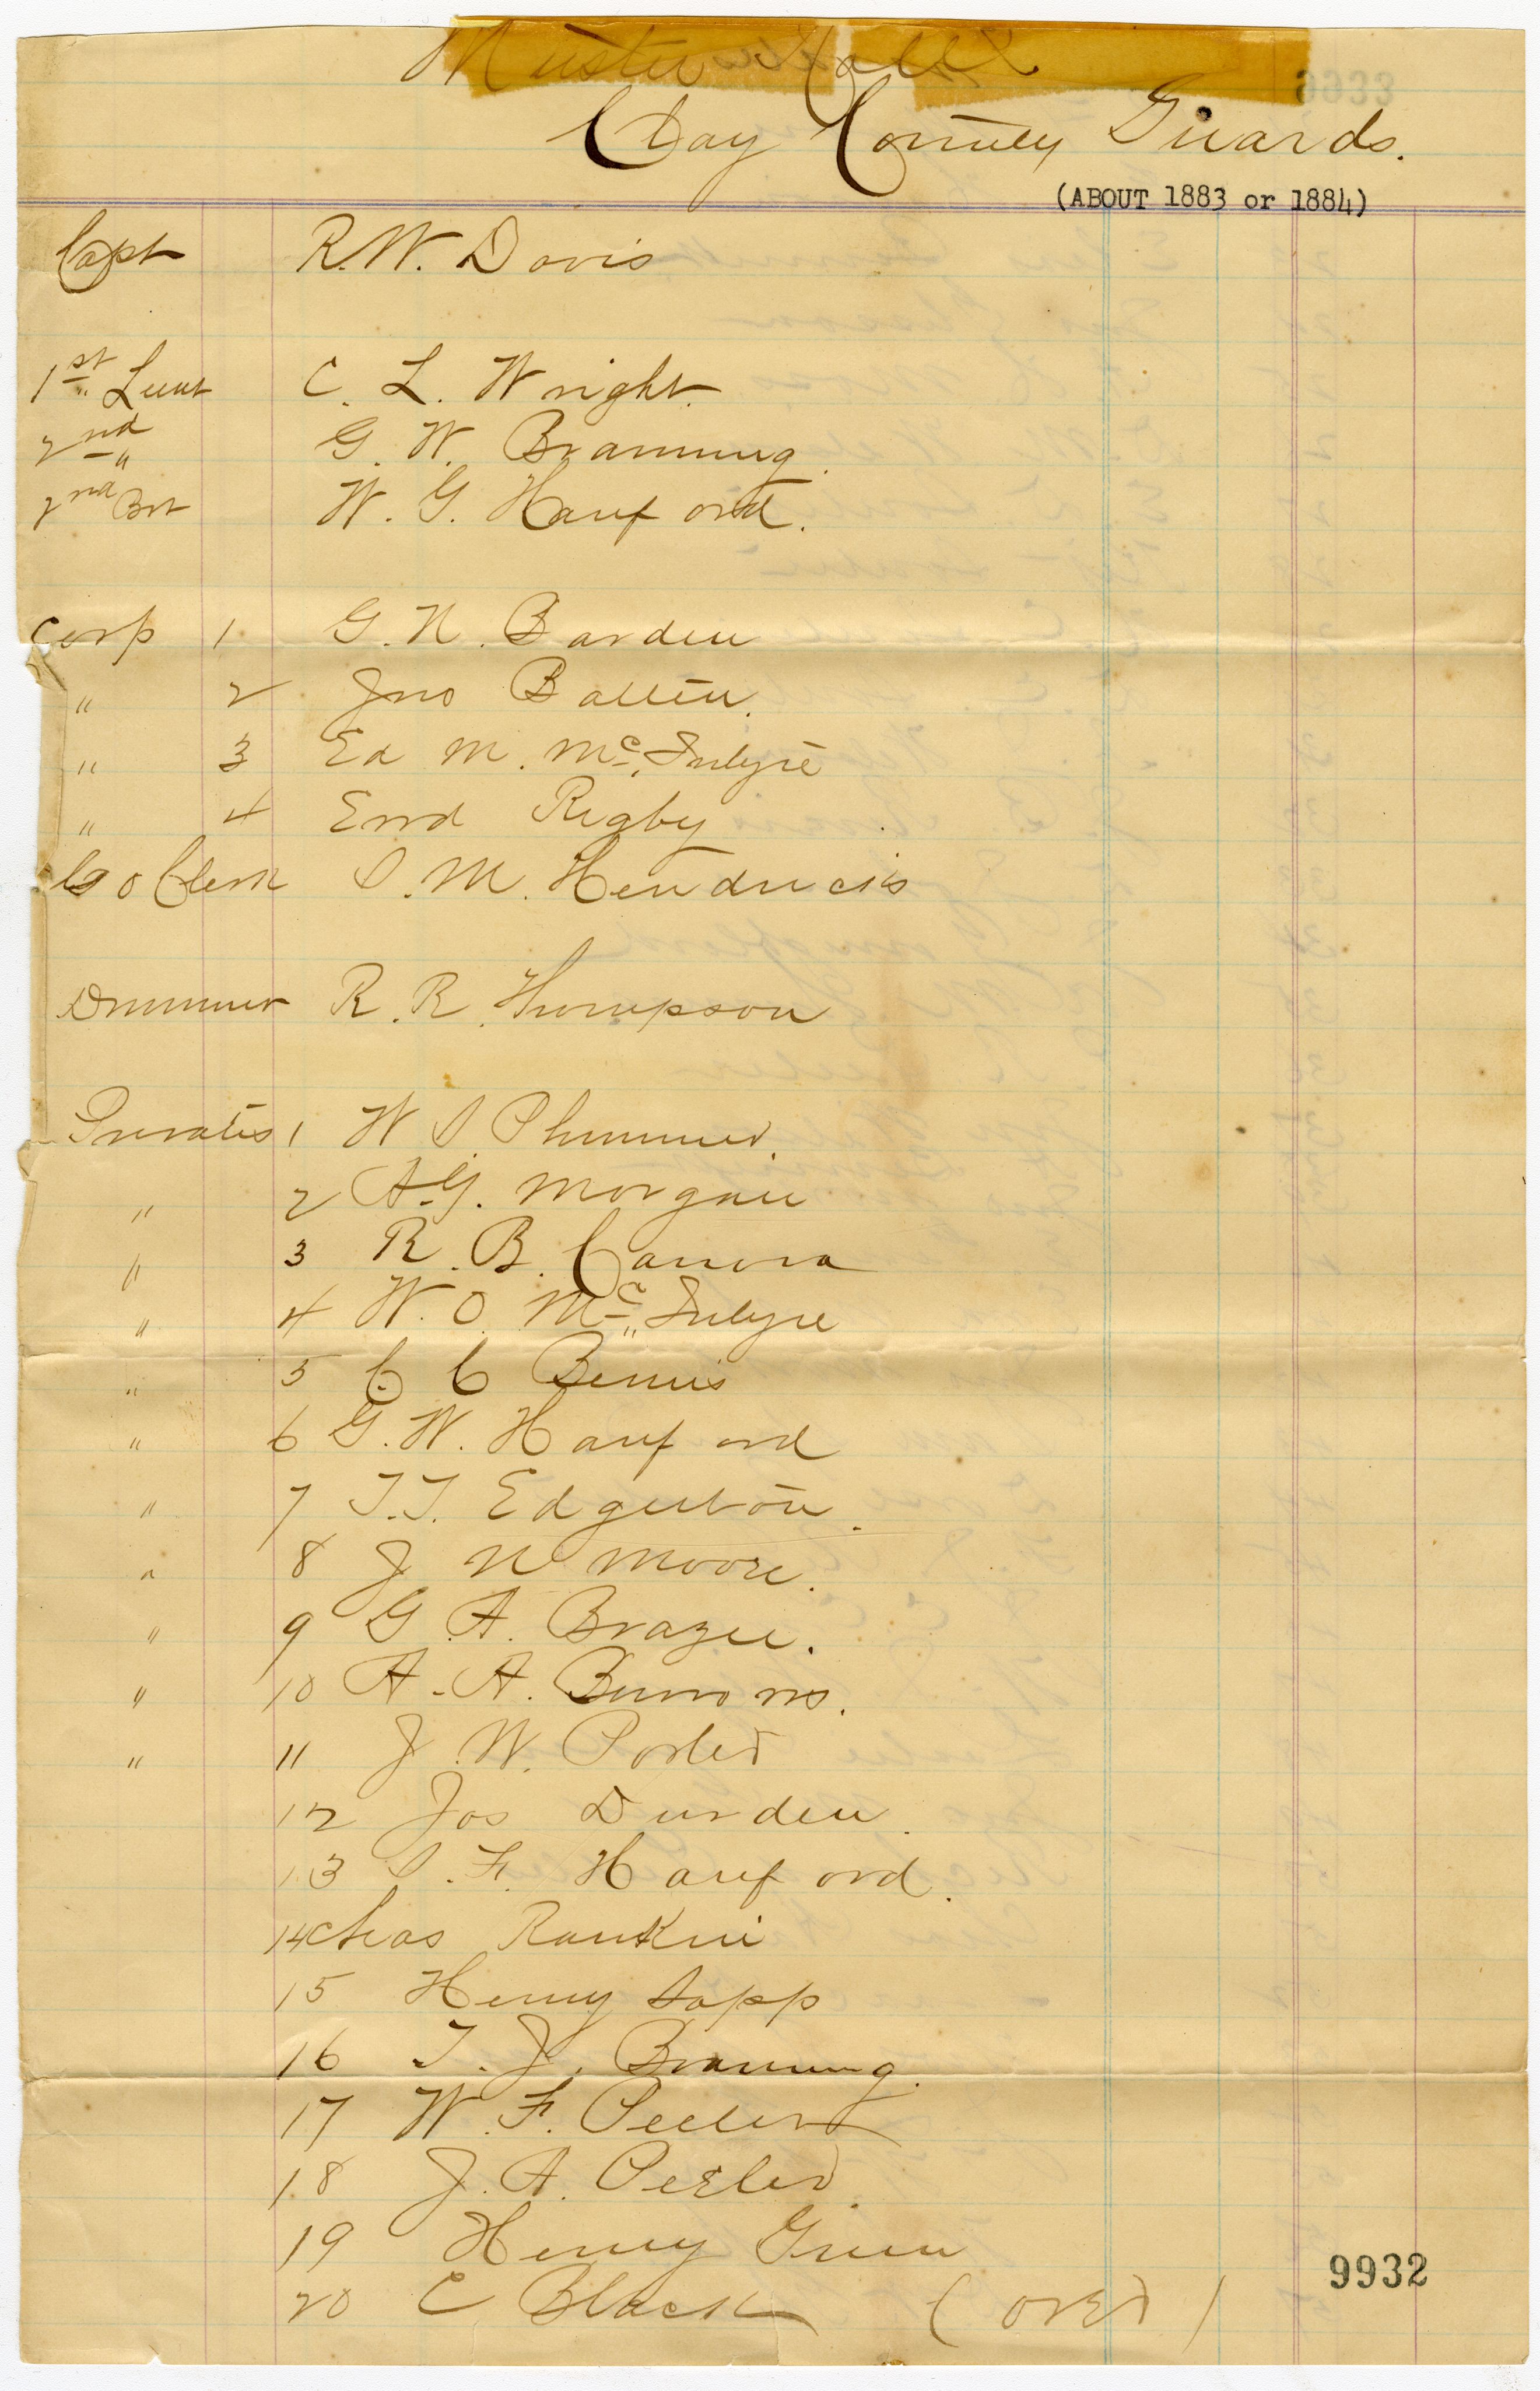 Muster Roll
Clay County Guards.
(ABOUT 1883 or 1884)
Capt R.W. Davis
1st Lieut C. L. Wright.
2nd " G. W. Branning.
2nd Bvt W. G. Hanford.
Corp 1 G. N. Barden
" 2 Jno Batten.
" 3 Ed M. Mc.Intyre
" 4 Errd Rigby
Co Clerk S. M. Hendricks
Drummer R. R. Thompson
Privates 1 W S Plummer.
" 2 A.G. Morgan
" 3 R. B. Canova
" 4 W. O. Mc Intyre
" 5 C. C Bemis
" 6 G. W. Hanford
" 7 T.T. Edgerton.
" 8 J N Moore.
" 9 G. A. Brazee.
" 10 A. A. Burrows.
" 11 J. W. Porter
12 Jos Durden.
13 S. F. Hanford.
14 Chas Rankin
15 Henry Sapp
16 T. J. Branning.
17 W. F. Peeler
18 J. A. Peeler.
19 Henry Green
20 C Black (over)
9932